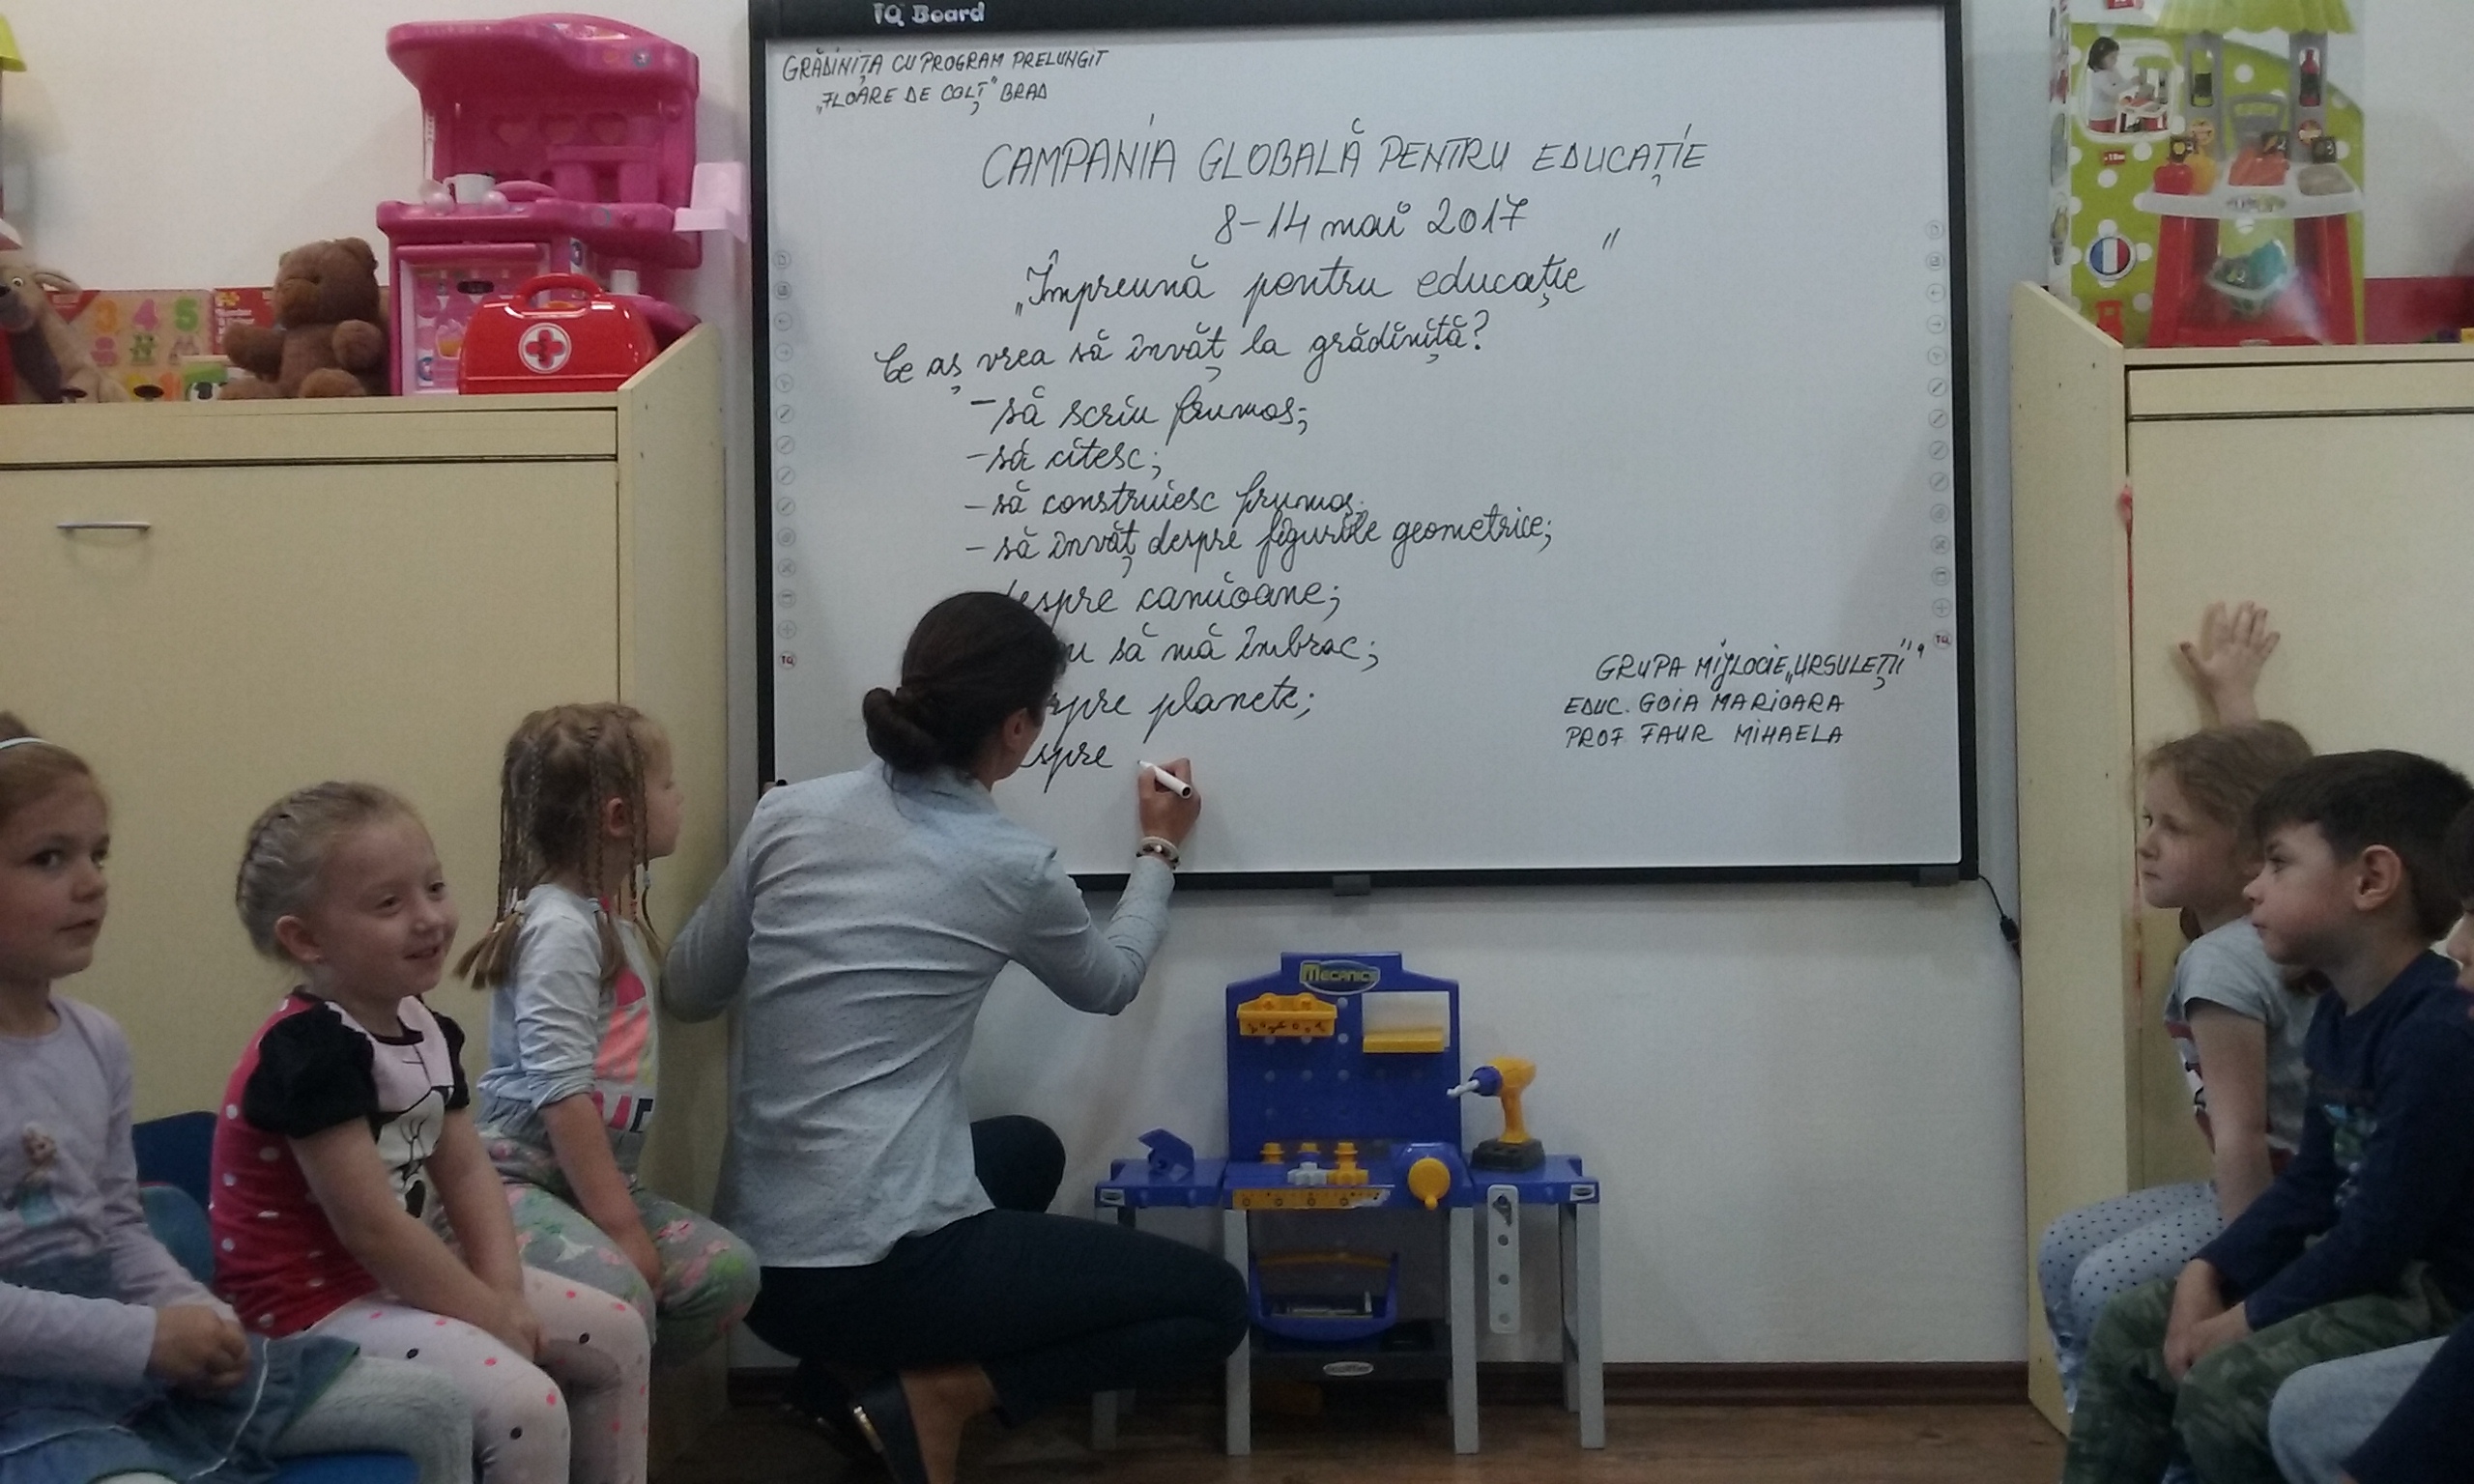 IQ Board
GRĂDINIȚA CU PROGRAM PRELUNGIT
„FLOARE DE COLȚ" BRAD
CAMPANIA GLOBALĂ PENTRU EDUCAȚIE
8-14 mai 2017
„Împreună pentru educație"
Ce aș vrea să învăț la grădiniță?
- să scriu frumos;
- să citesc;
- să construiesc frumos;
- să învăț despre figurile geometrice;
despre camioane;
să mă îmbrac;
planete;
GRUPA MIJLOCIE „URSULEȚII"
EDUC. GOIA MARIOARA
PROF FAUR MIHAELA
3 4 5
MECANICS